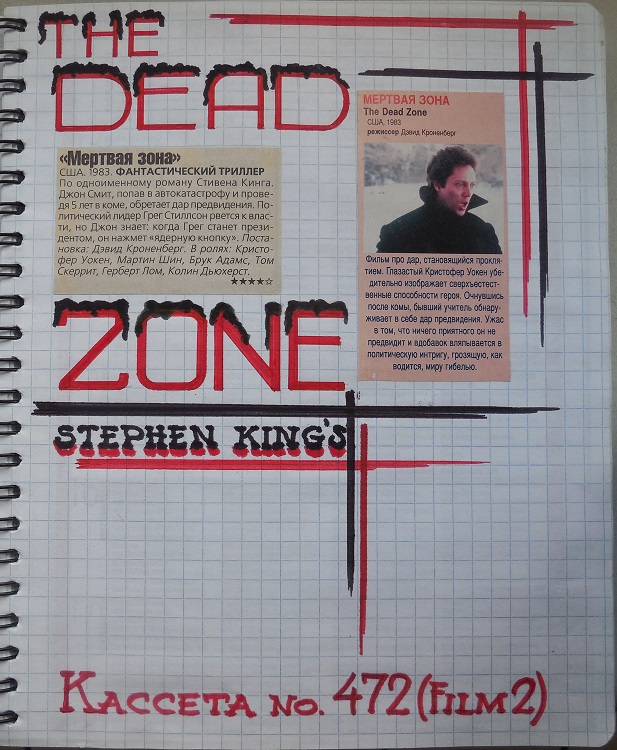 THE
DEAD
«Мертвая зона»
США. 1983. ФАНТАСТИЧЕСКИЙ ТРИЛЛЕР
По одноименному роману Стивена Кинга.
Джон Смит, попав в автокатастрофу и прове-
дя 5 лет в коме, обретает дар предвидения. По-
литический лидер Грег Стиллсон рвется к влас-
ти, но Джон знает: когда Грег станет прези-
дентом, он нажмет «ядерную кнопку». Поста-
новка: Дэвид Кроненберг. В ролях: Кристо-
фер Уокен, Мартин Шин, Брук Адамс, Том
Скеррит, Герберт Лом, Колин Дьюхерст.
★★★★☆
МЕРТВАЯ ЗОНА
The Dead Zone
США, 1983
режиссер Дэвид Кроненберг
Фильм про дар, становящийся прокля-
тием. Глазастый Кристофер Уокен убе-
дительно изображает сверхъестест-
венные способности героя. Очнувшись
после комы, бывший учитель обнару-
живает в себе дар предвидения. Ужас
в том, что ничего приятного он не
предвидит и вдобавок вляпывается в
политическую интригу, грозящую, как
водится, миру гибелью.
ZONE
STEPHEN KING'S
КАССЕТА NO. 472 (FILM 2)